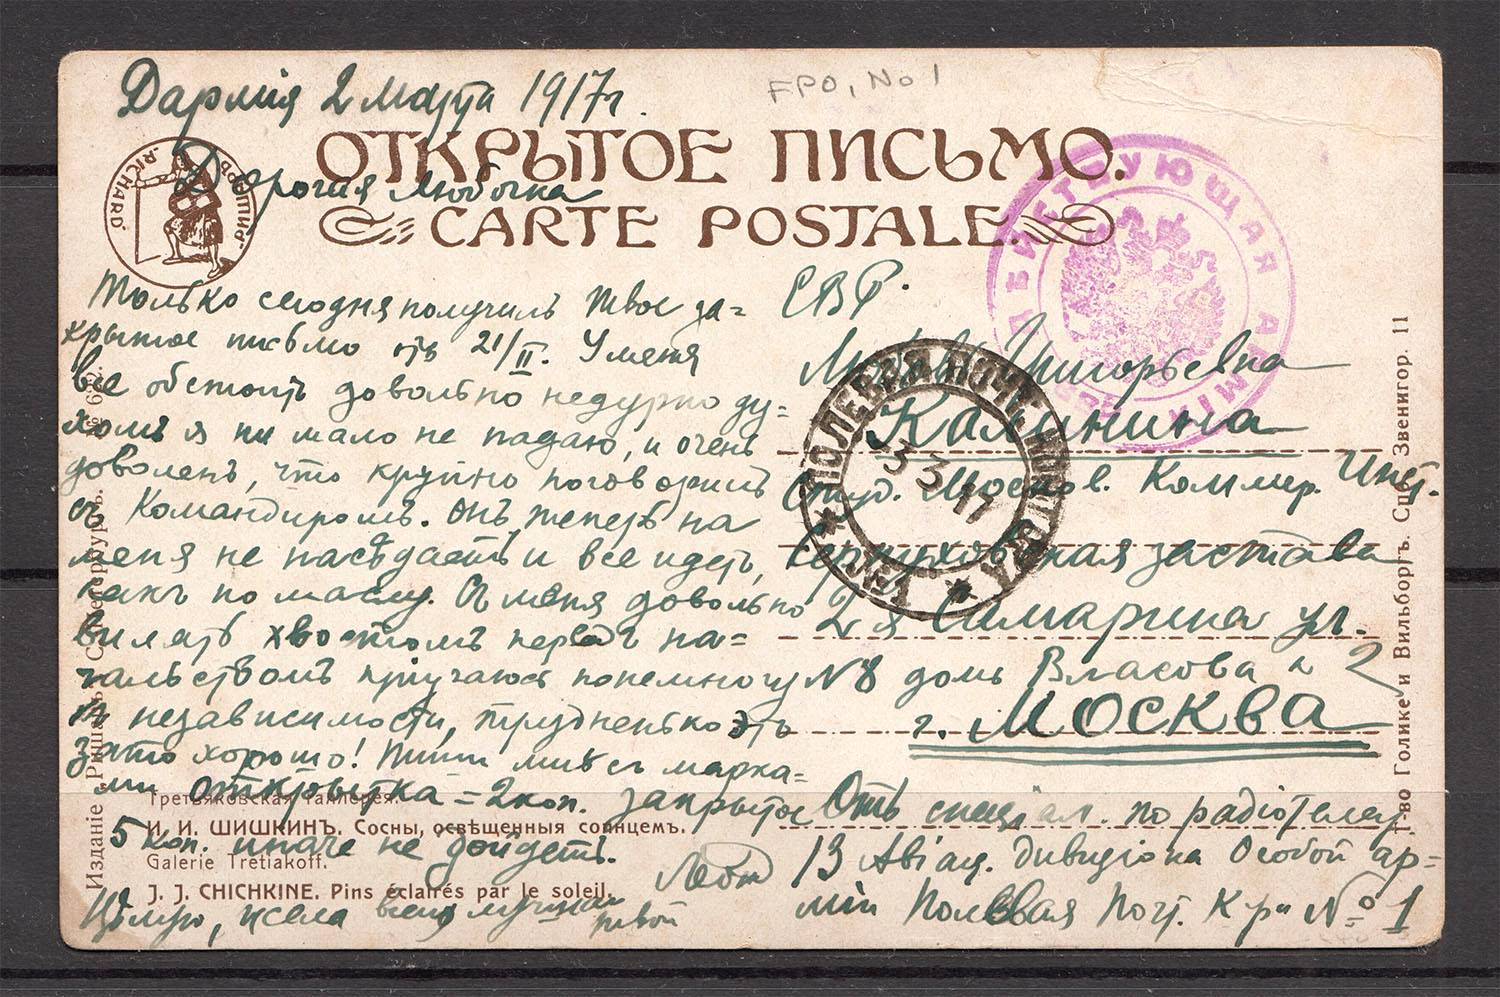 2 марта 1917г.
FPO, No 1
ОТКРЫТОЕ ПИСЬМО.
CARTE POSTALE.
"RICHARD"
"РИШАРЪ"
Дорогая Любочка
ДѢЙСТВУЮЩАЯ АРМІЯ
Только сегодня получилъ твое за=
крытое письмо отъ 21/II. У меня
все обстоитъ довольно недурно ду=
хомъ я ни мало не падаю, и очень
доволенъ, что крупно поговорилъ
съ Командиромъ. Онъ теперь на
меня не насѣдаетъ и все идетъ,
какъ по маслу. Съ меня довольно
вилять хвостомъ передъ на=
чальствомъ приучаюсь понемногу
к независимости, трудненько это
зато хорошо! Пиши мнѣ съ марка=
ми открытка = 2 коп. закрытое
5 коп. иначе не дойдетъ.
Цѣлую, всего
твой
ЕВР.
Григорьевна
Калинина
Студ. Москов. Коммер. Инст.
Серпуховская застава
2я Самарина ул.
№ 8 домъ Власова к 2
г. Москва
Отъ спеціал. по радіотелегр.
13 Авіац. дивизіона Особой ар=
міи Полевая Почт. К-ра № 1
ПОЛЕВАЯ ПОЧТ. КОНТОРА
№ 1
3 3 17
Третьяковская Галлерея.
И. И. ШИШКИНЪ. Сосны, освѣщенныя солнцемъ.
Galerie Tretiakoff.
J. J. CHICHKINE. Pins éclairés par le soleil.
Изданіе "Ришаръ" С.-Петербургъ.
Т-во Голике и Вильборгъ. Спб. Звенигор. 11